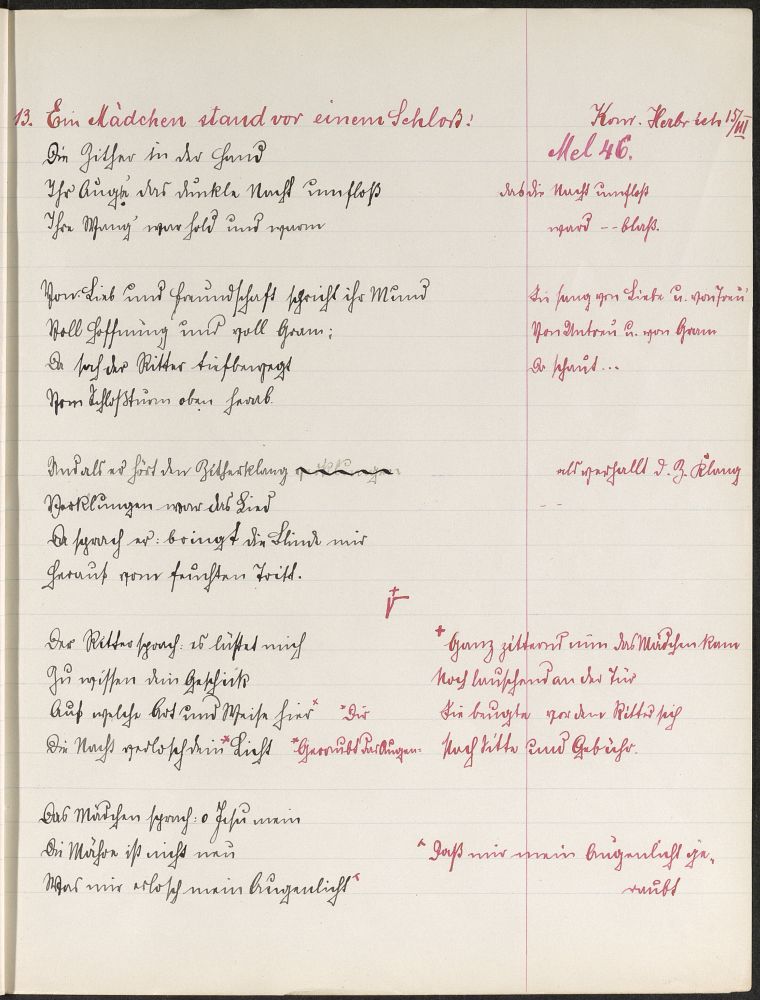 13. Ein Mädchen stand vor einem Schloß! Konr. 15/III
Die Zither in der Hand Mel 46.
Ihr Aug' das dunkle Nacht umfloß das die Nacht umfloß
Ihre Wang' war hold und warm ward -- blaß.
Von Lieb und Freundschaft spricht ihr Mund Sie sang von Liebe u. von Treu'
Voll Hoffnung und voll Gram; Von Untreu u. von Gram
Da sah der Ritter tiefbewegt Da schaut ...
Vom Schloßturm oben herab.
Und als er hört den Zitherklang als verhallt d. Z. Klang
Verklungen war das Lied - -
Da sprach er: bringt die Blinde mir
Herauf vom feuchten Tritt.
Der Ritter sprach: es lüstet mich + Ganz zitternd nun das Mädchen kam
Zu wissen dein Geschick Noch lauschend an der Tür
Auf welche Art und Weise hier x x Dir Sie beugte vor dem Ritter sich
Die Nacht verlosch dein x Licht x Geraubt das Augen- Nach Sitte und Gebühr.
Das Mädchen sprach: o Jesu mein
Die Mähre ist nicht neu x Daß mir mein Augenlicht ge-
Was mir erlosch mein Augenlicht x raubt